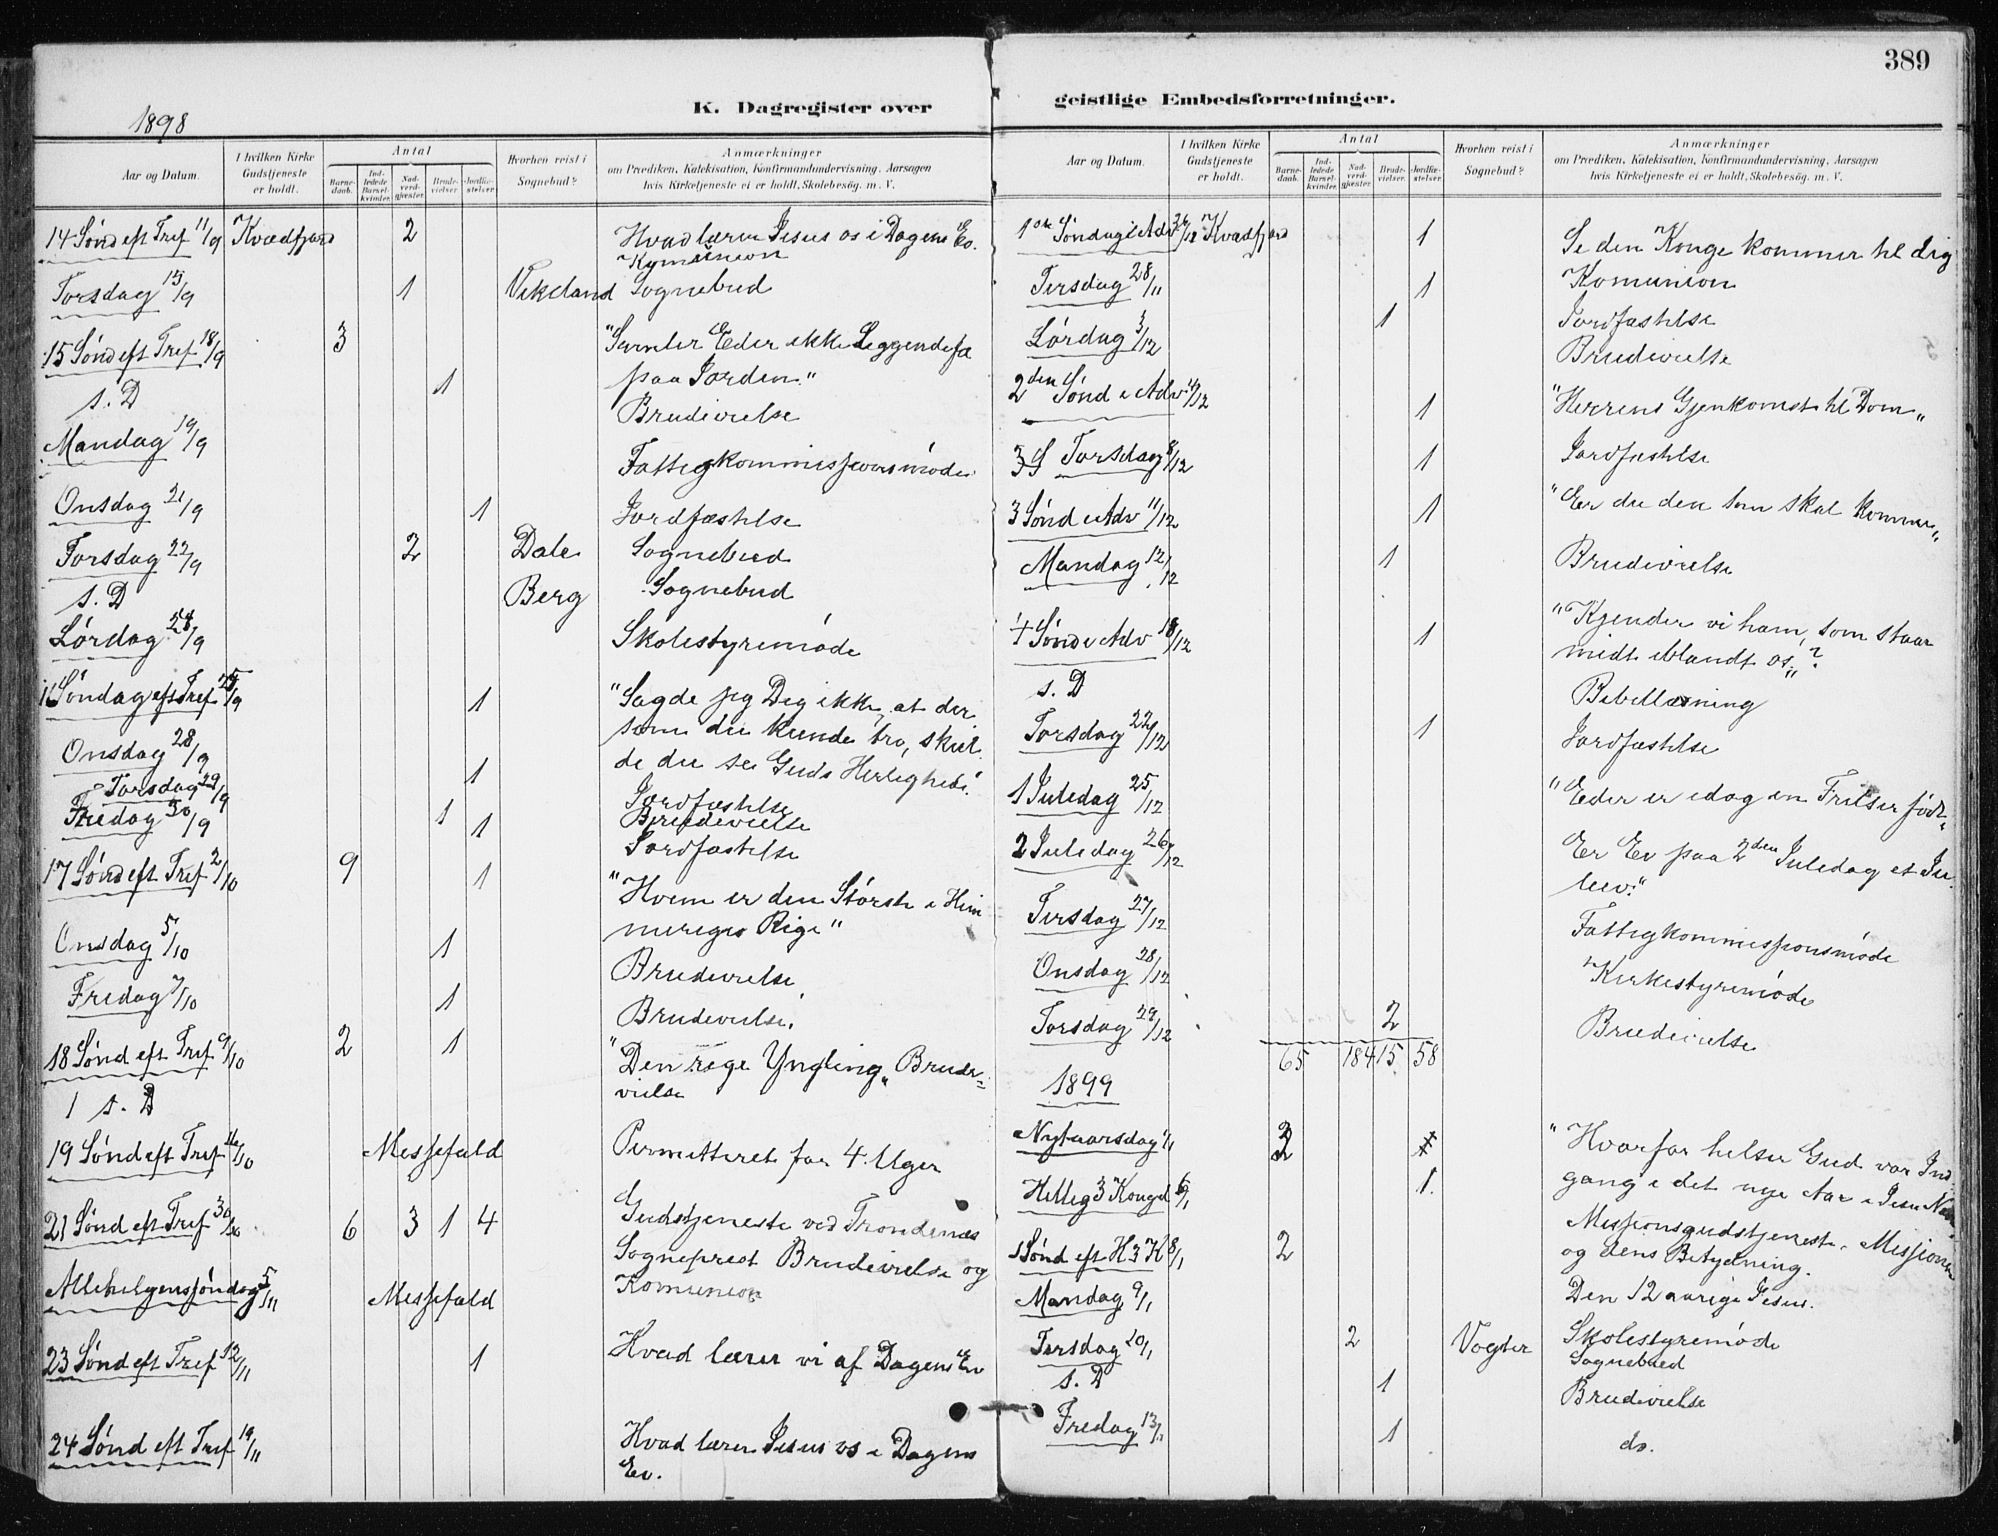 389
K. Dagregister over geistlige Embedsforretninger.
1898
Aar og Datum.
I hvilken Kirke Gudstjeneste er holdt.
Antal
Barnedaab.
Indledede Barselkvinder.
Nadverdgjester.
Brudevielser.
Jordfæstelser.
Hvorhen reist i Sognebud?
Anmærkninger
om Prædiken, Katekisation, Konfirmandundervisning, Aarsagen
hvis Kirketjeneste ei er holdt, Skolebesøg. m. V.
14 Sønd eft Tref 11/9 Kvædfjord 2 Hvad lærer Jesus os i Dagens Ev.
Torsdag 15/9 1 Sognebud
15 Sønd eft Tref 18/9 3 "Samler Eder ikke Liggendefæ
paa Jorden."
s. D 1 Brudevielse
Mandag 19/9 Fattigkommissionsmøde
Onsdag 21/9 1 Jordfæstelse
Torsdag 22/9 2 Dale Sognebud
s. D Berg Sognebud
Lørdag 24/9 Skolestyremøde
16 Søndag eft Tref 25/9 1 "Sagde jeg Dig ikke, at der
som du kunde tro, skul
de du se Guds Herlighed".
Onsdag 28/9 1 Jordfæstelse
Torsdag 29/9 1 Brudevielse
Fredag 30/9 1 Jordfæstelse
17 Sønd eft Tref 2/10 9 1 "Hvem er den Største i Him
meriges Rige"
Onsdag 5/10 1 Brudevielse
Fredag 7/10 1 Brudevielse.
18 Sønd eft Tref 9/10 2 1 "Den rige Yngling" Brude-
vielse
1 s. D
19 Sønd eft Tref 16/10 Messefald Permitteret for 4 Uger
21 Sønd eft Tref 30/10 6 3 1 4 Gudstjeneste ved Trondenæs
Sogneprest Brudevielse og
Komunion
Allehelgenssøndag 5/11 Messefald
23 Sønd eft Tref 12/11 1 Hvad lærer vi af Dagens Ev
24 Sønd eft Tref 19/11 Hvad lærer Jesus os i Dagens
Ev.
Aar og Datum.
I hvilken Kirke Gudstjeneste er holdt.
Antal
Barnedaab.
Indledede Barselkvinder.
Nadverdgjester.
Brudevielser.
Jordfæstelser.
Hvorhen reist i Sognebud?
Anmærkninger
om Prædiken, Katekisation, Konfirmandundervisning, Aarsagen
hvis Kirketjeneste ei er holdt, Skolebesøg. m. V.
1ste Søndag i Adv Kvædfjord 1 Se den Konge kommer til dig
Komunion
Tirsdag 28/11 1 Jordfæstelse
Lørdag 3/12 1 Brudevielse
2den Sønd i Adv 4/12 1 "Herrens Gjenkomst til Dom"
Torsdag 8/12 1 Jordfæstelse
3 Sønd i Adv 11/12 1 "Er du den som skal komme"
Mandag 12/12 1 Brudevielse
4 Sønd i Adv 18/12 1 "Kjender vi ham, som staar
midt iblandt os"?
s. D Bibellæsning
Torsdag 22/12 1 Jordfæstelse
1 Juledag 25/12 "Eder er idag en Frelser født"
2 Juledag 26/12 Er Ev paa 2den Juledag et Ju
leev."
Tirsdag 27/12 Fattigkommissionsmøde
Onsdag 28/12 Kirkestyremøde
Torsdag 29/12 2 Brudevielse
65 184 15 58
1899
Nytaarsdag 1/1 "Hvorfor helser Gud vor Ind-
gang i det nye Aar i Jesu Navn
Hellig 3 Kongd 6/1 1. Missionsgudstjeneste. Missionen
og dens Betydning.
1 Sønd eft H 3 K 8/1 2 Den 12 aarige Jesus.
Mandag 9/1 Skolestyremøde
Tirsdag 10/1 2 Vogter Sognebud
s. D 1 Brudevielse
Fredag 13/1 1 do.